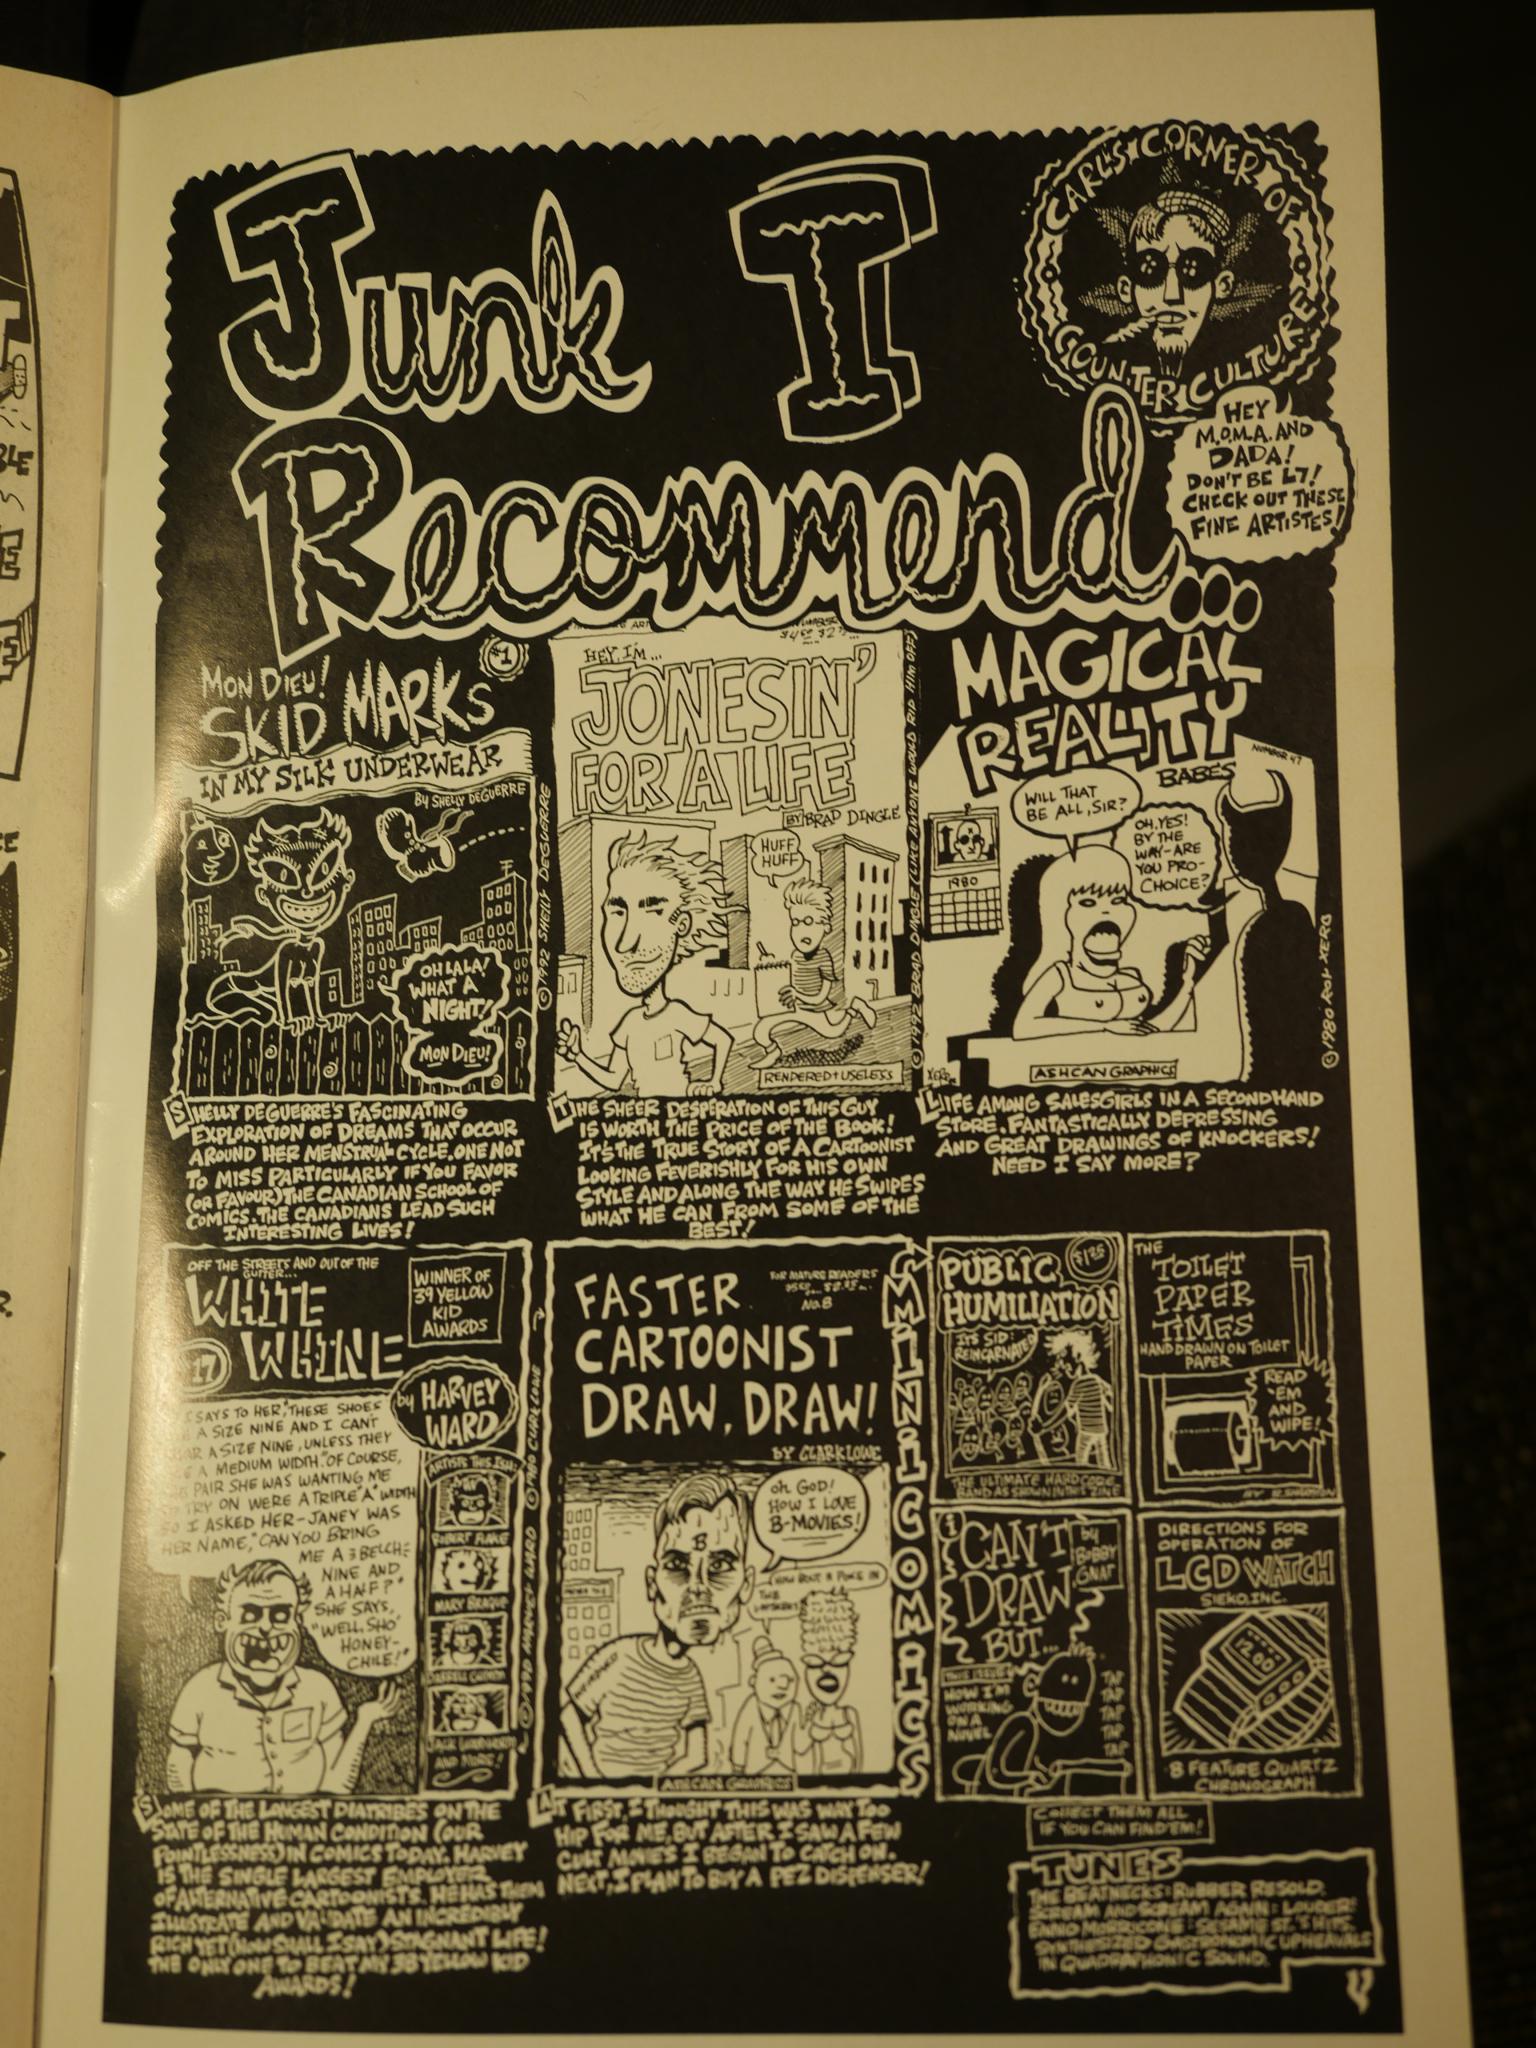 Junk I
Recommend...
CARL'S CORNER OF
COUNTER CULTURE
HEY
M.O.M.A. AND
DADA!
DON'T BE L7!
CHECK OUT THESE
FINE ARTISTES!
MON DIEU!
#1
SKID MARKS
IN MY SILK UNDERWEAR
BY SHELLY DEGUERRE
OH LALA!
WHAT A
NIGHT!
MON DIEU!
© 1992 SHELLY DEGUERRE
SHELLY DEGUERRE'S FASCINATING
EXPLORATION OF DREAMS THAT OCCUR
AROUND HER MENSTRUAL CYCLE. ONE NOT
TO MISS PARTICULARLY IF YOU FAVOR
(OR FAVOUR) THE CANADIAN SCHOOL OF
COMICS. THE CANADIANS LEAD SUCH
INTERESTING LIVES!
HEY, I'M...
JONESIN'
FOR A LIFE
BY BRAD DINGLE
HUFF
HUFF
RENDERED + USELESS
© 1992 BRAD DINGLE (LIKE ANYONE WOULD RIP HIM OFF)
THE SHEER DESPERATION OF THIS GUY
IS WORTH THE PRICE OF THE BOOK!
IT'S THE TRUE STORY OF A CARTOONIST
LOOKING FEVERISHLY FOR HIS OWN
STYLE AND ALONG THE WAY HE SWIPES
WHAT HE CAN FROM SOME OF THE
BEST!
MAGICAL
REALITY
BABES
NUMBER 47
WILL THAT
BE ALL, SIR?
OH, YES!
BY THE
WAY-ARE
YOU PRO-
CHOICE?
1980
ASHCAN GRAPHICS
© 1980 ROY XERO
LIFE AMONG SALESGIRLS IN A SECONDHAND
STORE. FANTASTICALLY DEPRESSING
AND GREAT DRAWINGS OF KNOCKERS!
NEED I SAY MORE?
OFF THE STREETS AND OUT OF THE
GUTTER...
WHITE
WHINE
17
WINNER OF
39 YELLOW
KID
AWARDS
by HARVEY
WARD
I SAYS TO HER, "THESE SHOES
A SIZE NINE AND I CAN'T
A SIZE NINE, UNLESS THEY
A MEDIUM WIDTH. OF COURSE,
PAIR SHE WAS WANTING ME
TRY ON WERE A TRIPLE "A" WIDTH
SO I ASKED HER-JANEY WAS
HER NAME, "CAN YOU BRING
ME A
NINE AND
A HALF?"
SHE SAYS,
"WELL, SHO'
HONEY-
CHILE!"
ARTISTS THIS ISH:
MARY BRAQUE
AND MORE!
SOME OF THE LONGEST DIATRIBES ON THE
STATE OF THE HUMAN CONDITION (OUR
POINTLESSNESS) IN COMICS TODAY. HARVEY
IS THE SINGLE LARGEST EMPLOYER
OF ALTERNATIVE CARTOONISTS. HE HAS THEM
ILLUSTRATE AND VALIDATE AN INCREDIBLY
RICH YET (HOW SHALL I SAY) STAGNANT LIFE!
THE ONLY ONE TO BEAT MY 38 YELLOW KID
AWARDS!
FASTER
CARTOONIST
DRAW, DRAW!
FOR MATURE READERS
No. 8
BY CLARK LOWE
OH GOD!
HOW I LOVE
B-MOVIES!
B
ASHCAN GRAPHICS
AT FIRST, I THOUGHT THIS WAS WAY TOO
HIP FOR ME, BUT AFTER I SAW A FEW
CULT MOVIES I BEGAN TO CATCH ON.
NEXT, I PLAN TO BUY A PEZ DISPENSER!
MINI COMICS
PUBLIC
HUMILIATION
$1.25
IT'S SID:
REINCARNATE!
THE ULTIMATE HARDCORE
BAND AS SHOWN IN THIS ZINE
THE
TOILET
PAPER
TIMES
HAND DRAWN ON TOILET
PAPER
READ
'EM
AND
WIPE!
I CAN'T
DRAW
BUT...
by
BOBBY
GNAT
THIS ISSUE:
HOW I'M
WORKING
ON A
NOVEL
TAP
TAP
TAP
TAP
TAP
DIRECTIONS FOR
OPERATION OF
LCD WATCH
SIEKO, INC.
12:00
8 FEATURE QUARTZ
CHRONOGRAPH
COLLECT THEM ALL
IF YOU CAN FIND 'EM!
TUNES
THE BEATNECKS: RUBBER RESOLD.
SCREAM AND SCREAM AGAIN: LOUDER!
ENNIO MORRICONE: SESAME ST.'S HITS.
SYNTHESIZED GASTRONOMIC UPHEAVALS
IN QUADRAPHONIC SOUND.